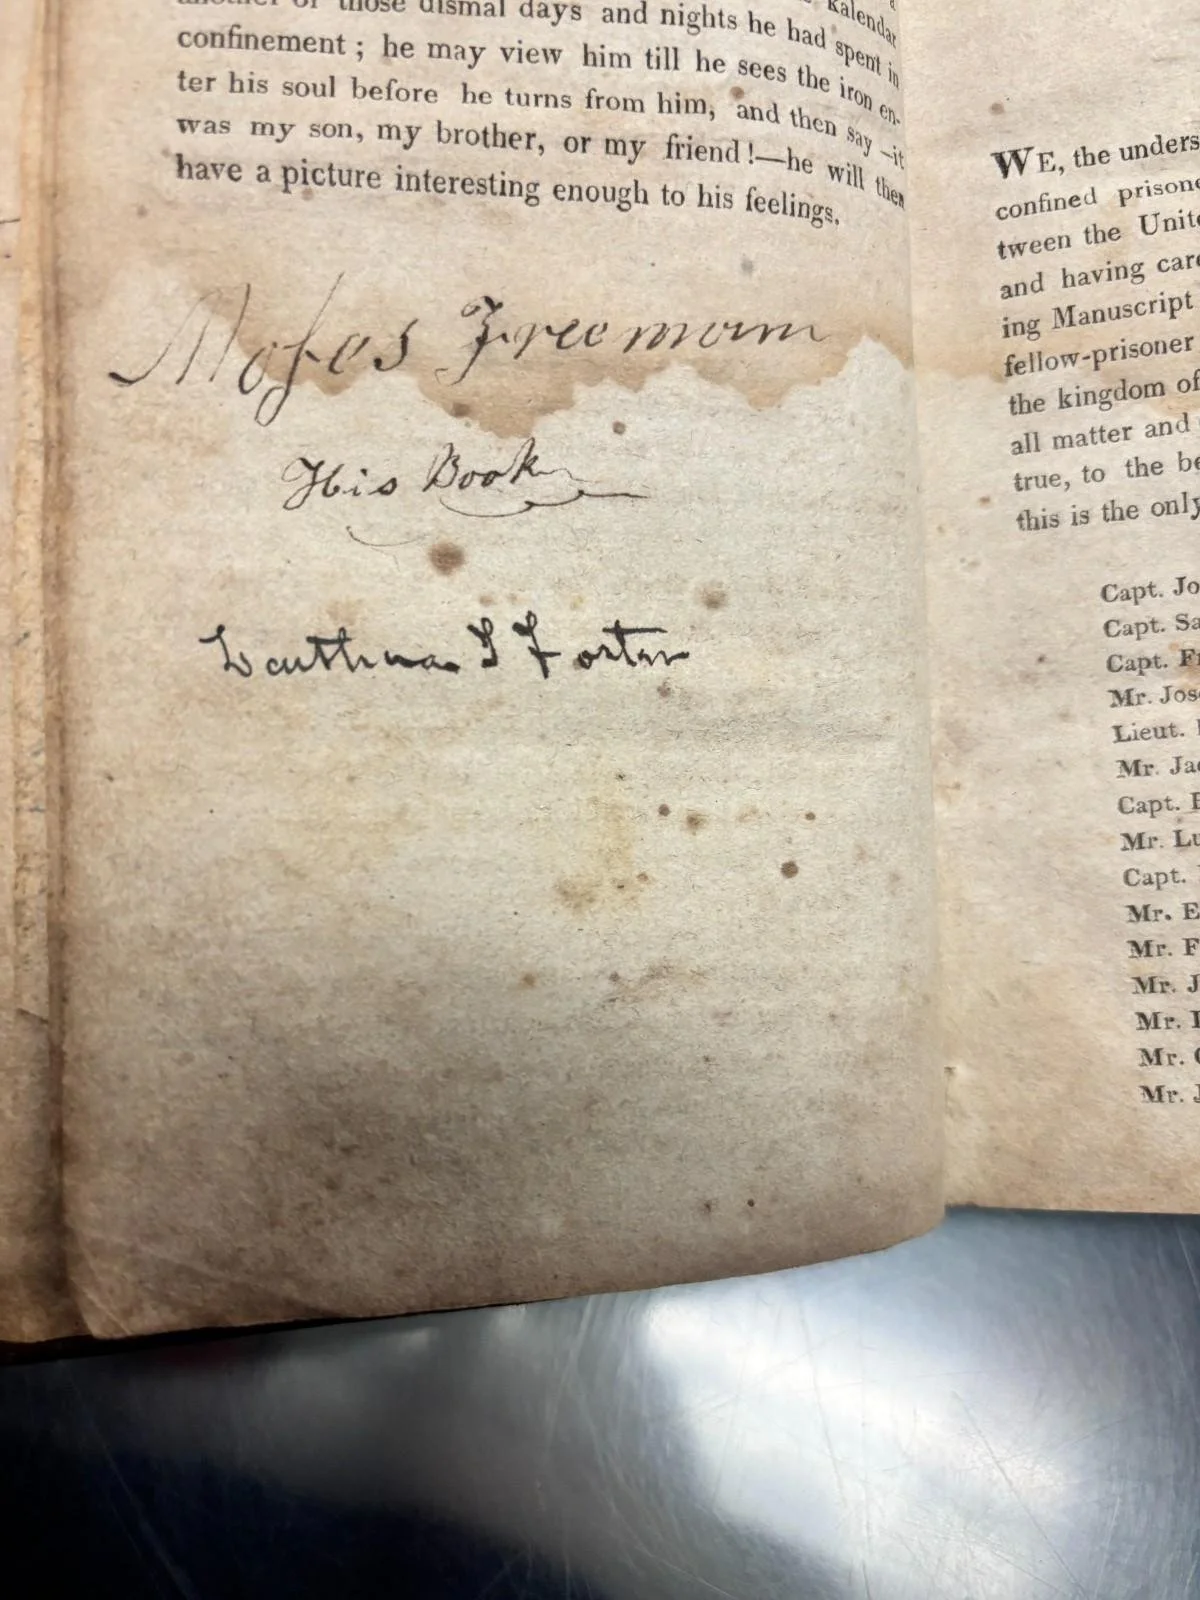 another of those dismal days and nights he had spent in
confinement ; he may view him till he sees the iron en-
ter his soul before he turns from him, and then say —it
was my son, my brother, or my friend !—he will then
have a picture interesting enough to his feelings.
Moſes Freemam
His Book
Forter
WE, the unders
confined prisone
tween the Unite
and having care
ing Manuscript
fellow-prisoner
the kingdom of
all matter and
true, to the be
this is the only
Capt. Jo
Capt. Sa
Capt. Fr
Mr. Jos
Lieut.
Mr. Ja
Capt.
Mr. Lu
Capt.
Mr. E
Mr. F
Mr. J
Mr.
Mr.
Mr. J